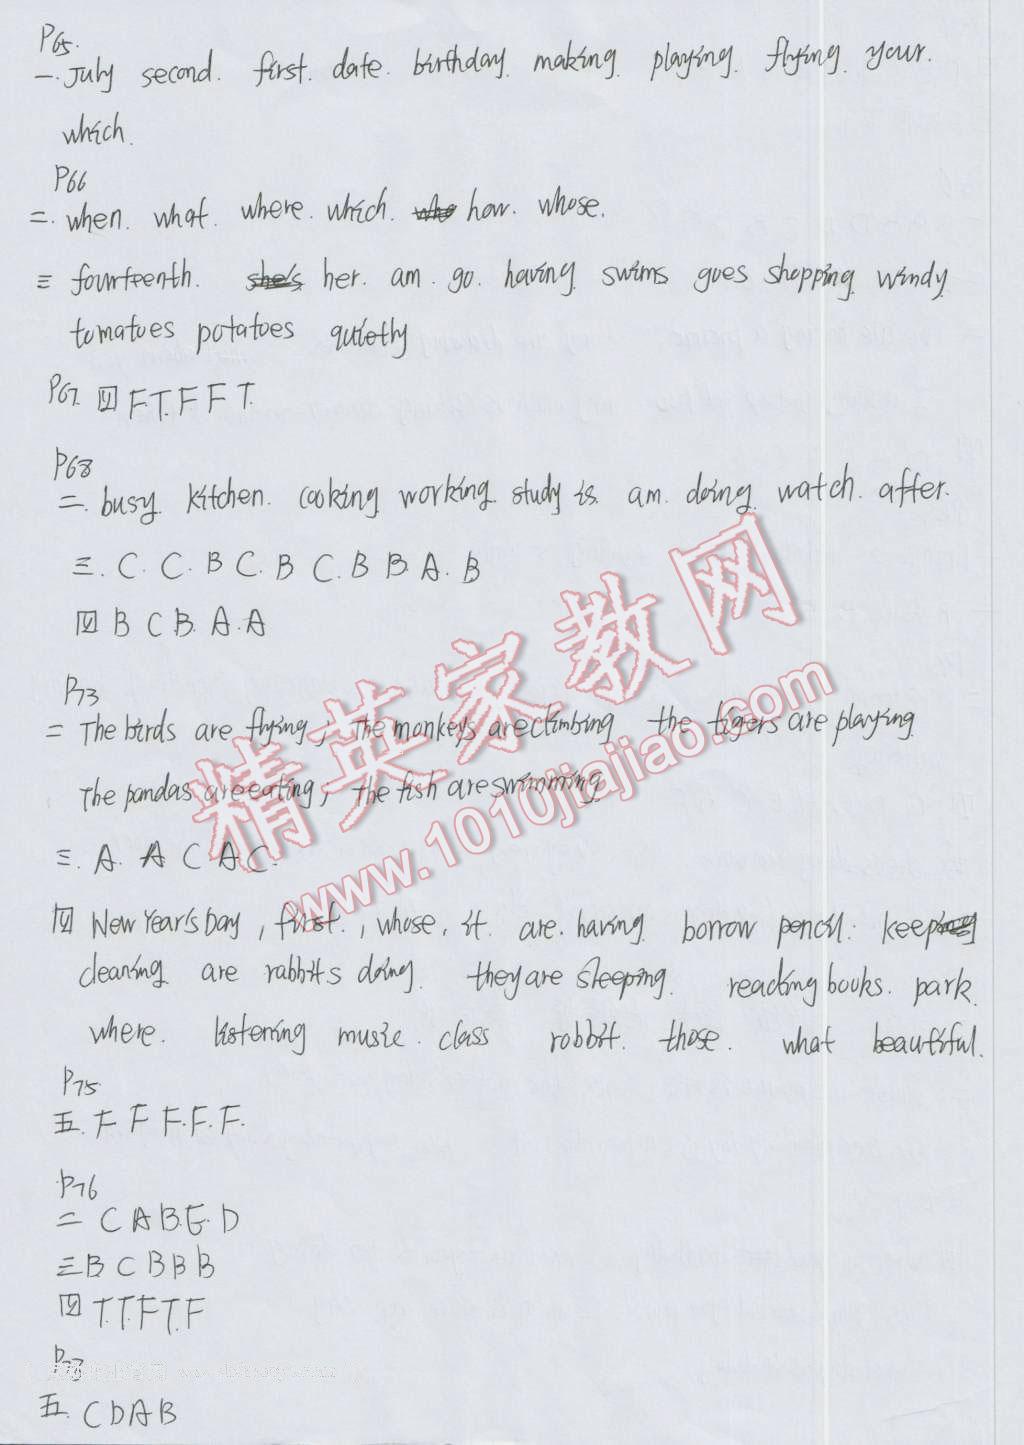 P65.
一. July second. first. date. birthday. making. playing. flying. your.
which.
P66
二. when. what. where. which. how. whose.
三 fourteenth. her. am. go. having. swims goes shopping. windy
tomatoes potatoes quietly
P67. 四 F.T.F F T.
P68
二. busy. kitchen. cooking working. study is. am. doing. watch. after.
三. C. C. B C. B C. B B. A. B
四 B C B. A. A
P73
二 The birds are flying; the monkeys are climbing the tigers are playing
The pandas are eating, the fish are swimming
三. A. A C A C.
四 New Year's Day, first., whose, it. are. having. borrow pencil. keep
cleaning are rabbits doing. they are sleeping. reading books. park.
where. listening music. class rabbit. those. what beautiful.
P75
五. F F F. F. F.
P76
二 C A B. E. D
三 B C B B B
四 T. T. F T. F
五. C D A B
精英家教网
www.1010jiajiao.com